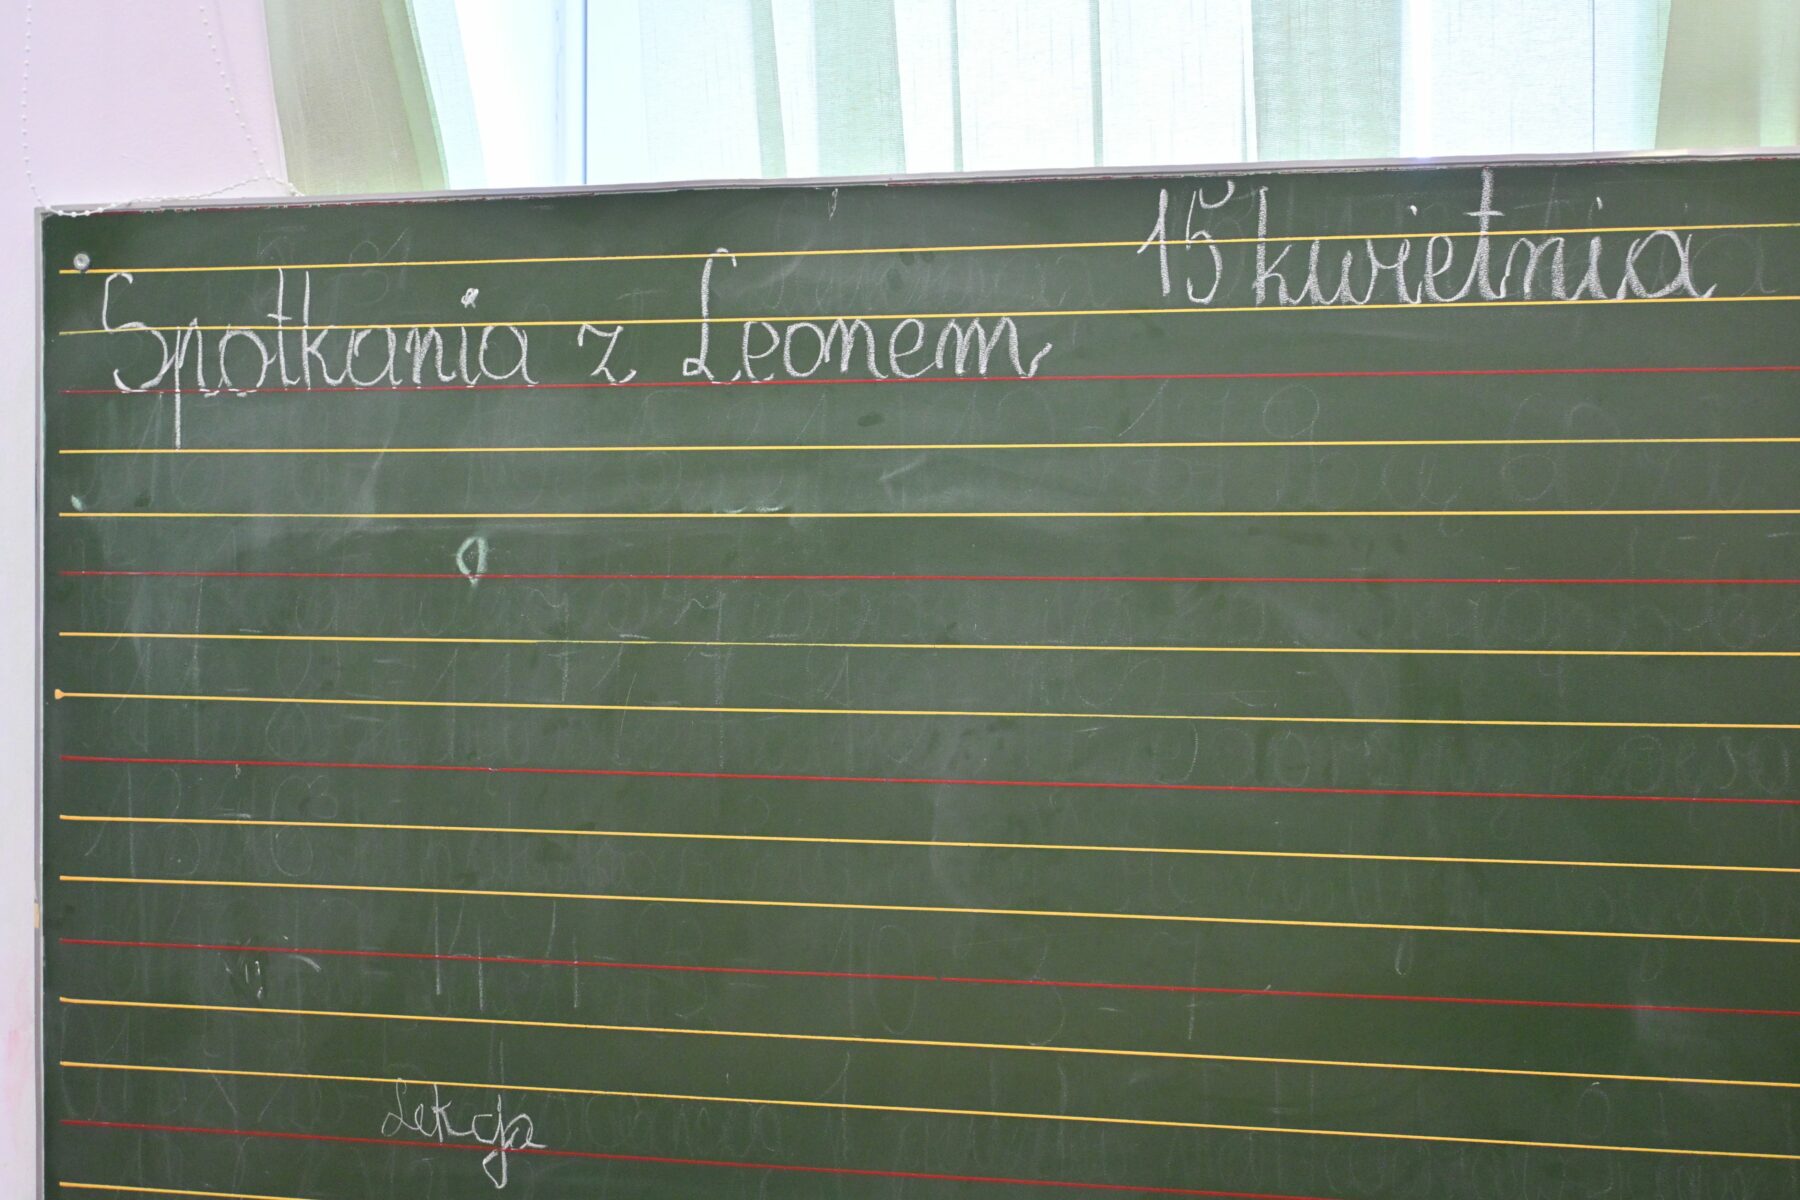 15 kwietnia
Spotkania z Leonem
Lekcja